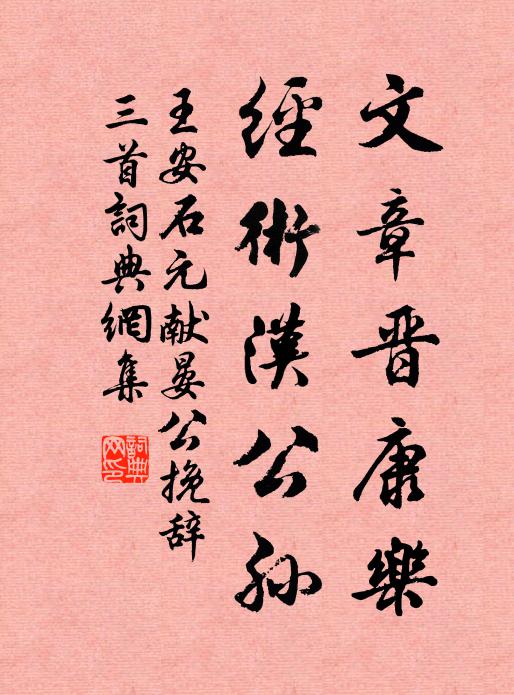 文章晋康樂
經術漢公孙
王安石元献晏公挽辞
三首詞典網集
詞典网印